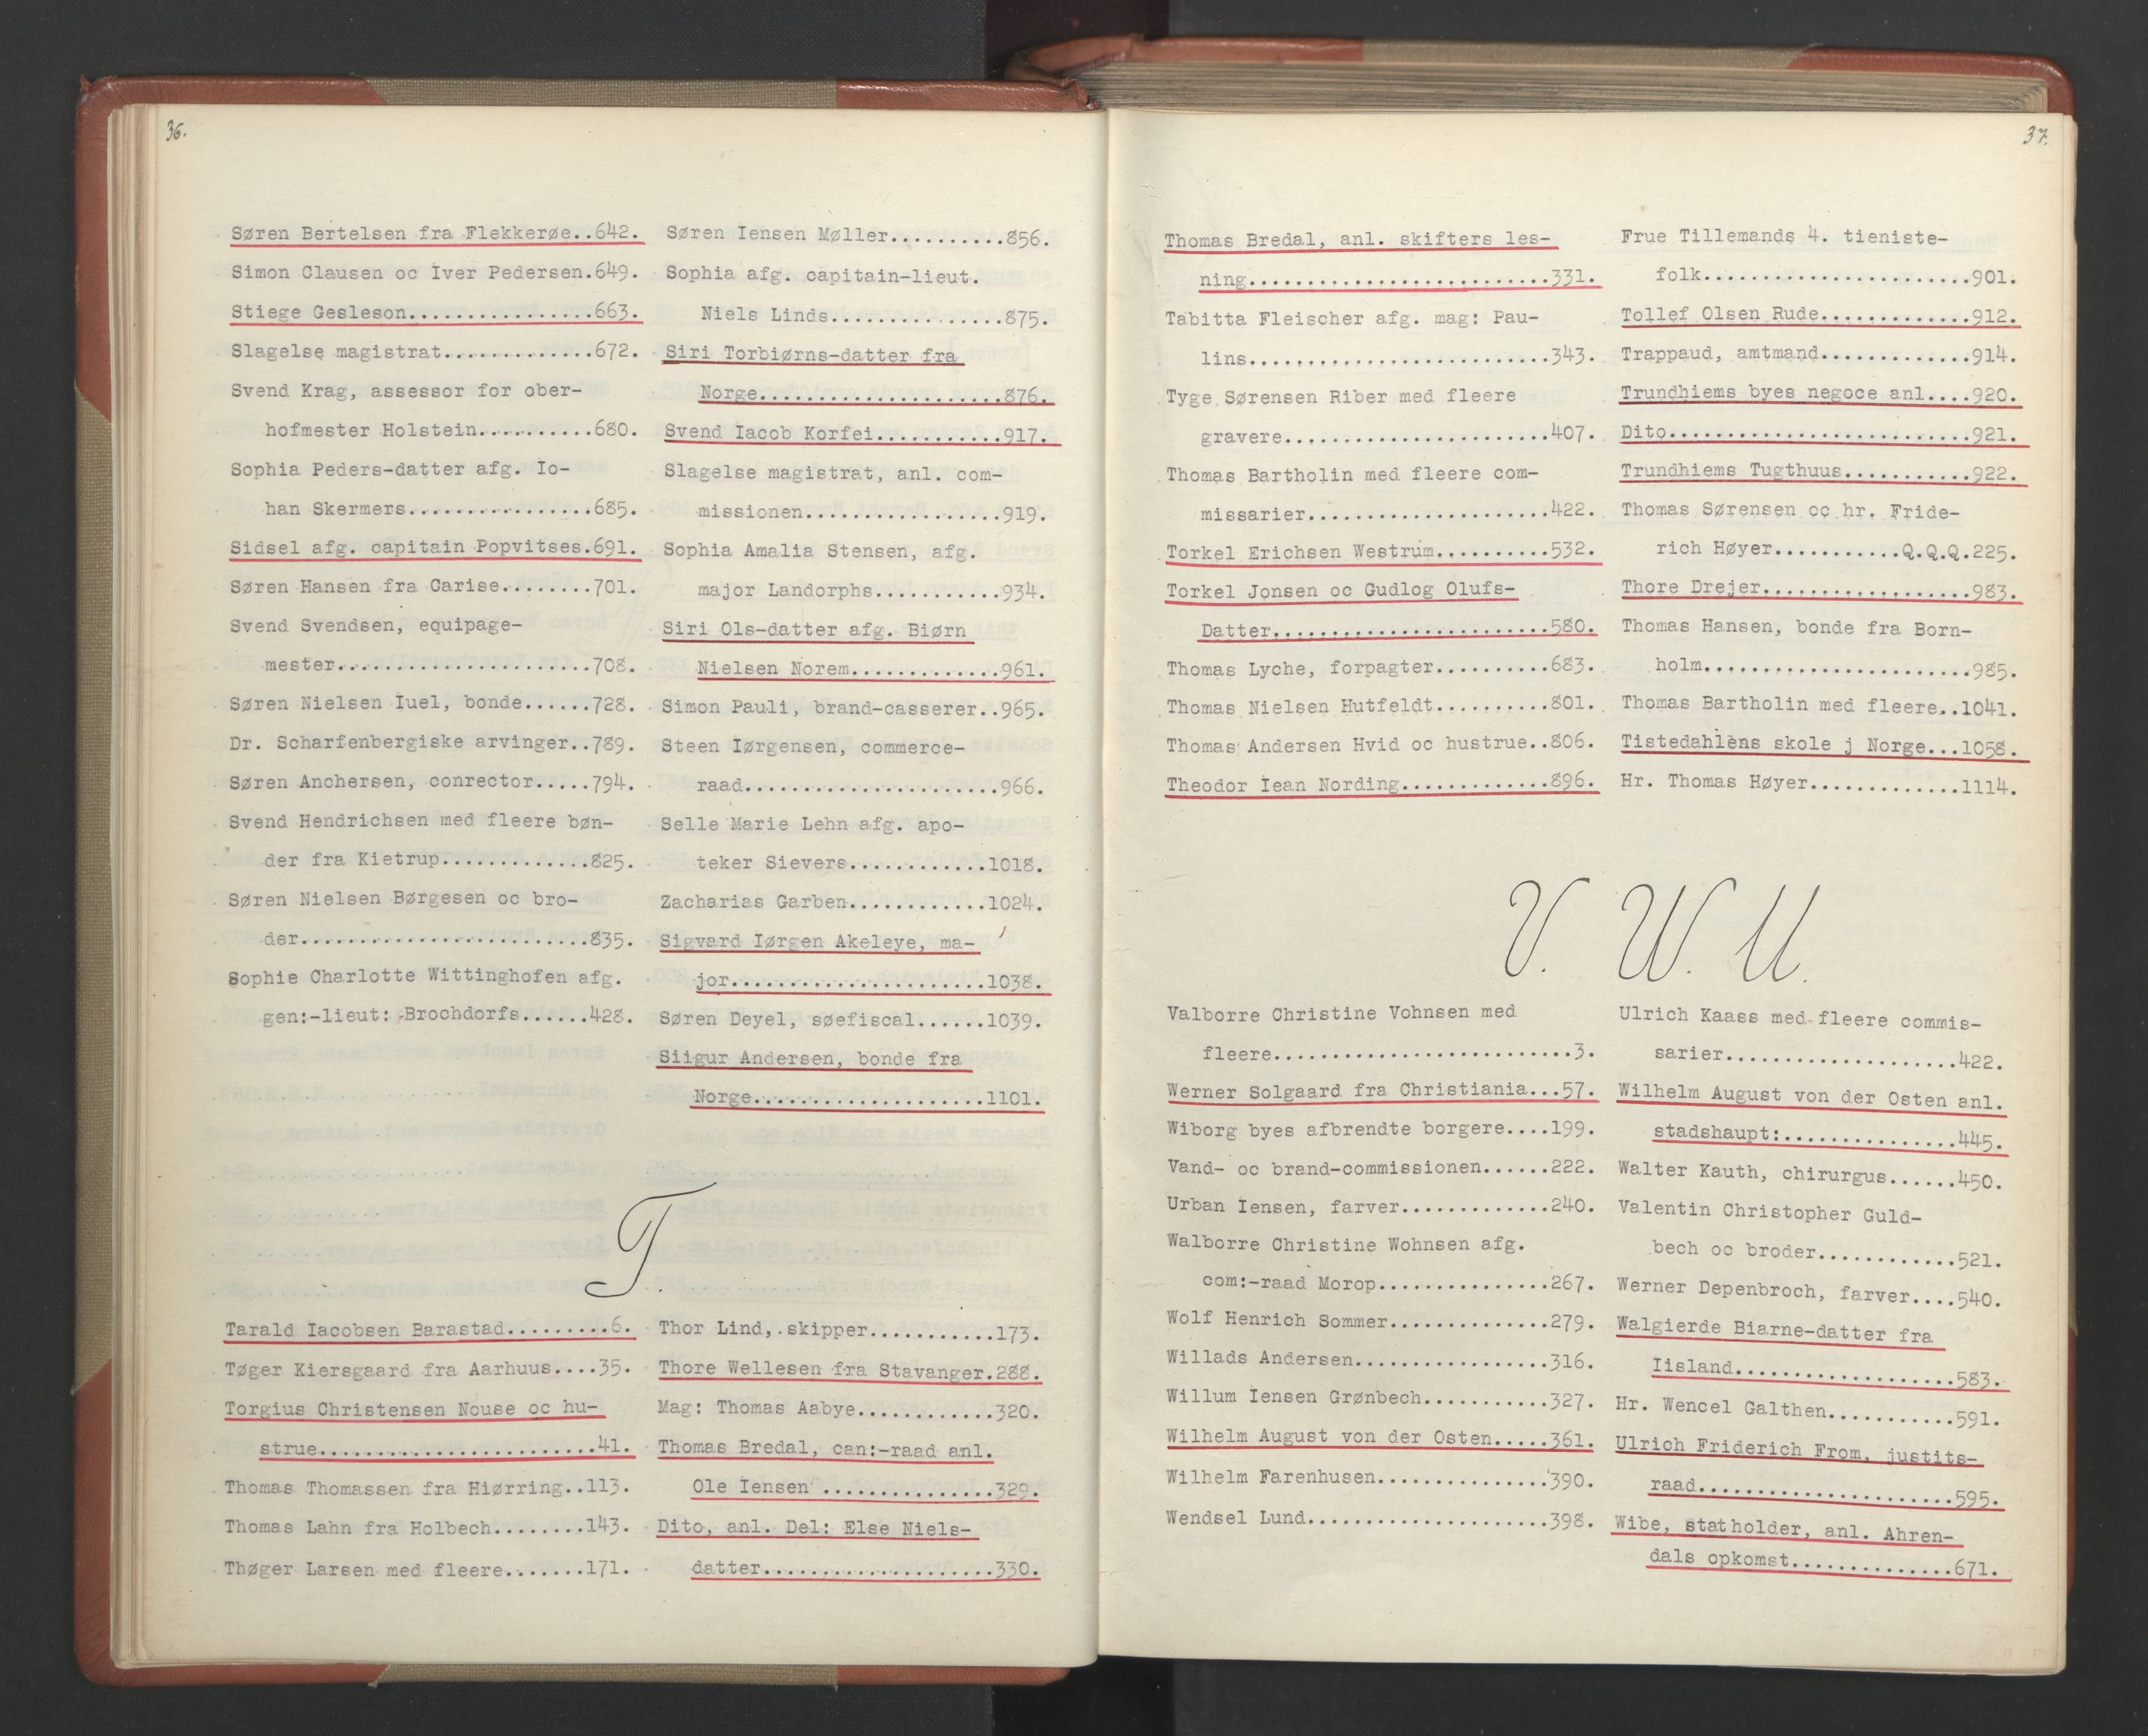 36.
Søren Bertelsen fra Flekkerøe..642.
Simon Clausen oc Iver Pedersen.649.
Stiege Gesleson................663.
Slagelse magistrat.............672.
Svend Krag, assessor for ober-
hofmester Holstein..........680.
Sophia Peders-datter afg. Io-
han Skermers................685.
Sidsel afg. capitain Popvitses.691.
Søren Hansen fra Carise........701.
Svend Svendsen, equipage-
mester......................708.
Søren Nielsen Iuel, bonde......728.
Dr. Scharfenbergiske arvinger..789.
Søren Anchersen, conrector.....794.
Svend Hendrichsen med fleere bøn-
der fra Kietrup.............825.
Søren Nielsen Børgesen oc bro-
der.........................835.
Sophie Charlotte Wittinghofen afg.
gen:-lieut: Brochdorfs......428.
Søren Iensen Møller..........856.
Sophia afg. capitain-lieut.
Niels Linds...............875.
Siri Torbiørns-datter fra
Norge.....................876.
Svend Iacob Korfei...........917.
Slagelse magistrat, anl. com-
missionen.................919.
Sophia Amalia Stensen, afg.
major Landorphs...........934.
Siri Ols-datter afg. Biørn
Nielsen Norem.............961.
Simon Pauli, brand-casserer..965.
Steen Iørgensen, commerce-
raad......................966.
Selle Marie Lehn afg. apo-
teker Sievers............1018.
Zacharias Garben............1024.
Sigvard Iørgen Akeleye, ma-
jor......................1038.
Søren Deyel, søefiscal......1039.
Siigur Andersen, bonde fra
Norge....................1101.
T.
Tarald Iacobsen Barastad.........6.
Tøger Kiersgaard fra Aarhuus....35.
Torgius Christensen Nouse oc hu-
strue........................41.
Thomas Thomassen fra Hiørring..113.
Thomas Lahn fra Holbech........143.
Thøger Larsen med fleere.......171.
Thor Lind, skipper...........173.
Thore Wellesen fra Stavanger.288.
Mag: Thomas Aabye............320.
Thomas Bredal, can:-raad anl.
Ole Iensen................329.
Dito, anl. Del: Else Niels-
datter....................330.
37.
Thomas Bredal, anl. skifters les-
ning..........................331.
Tabitta Fleischer afg. mag: Pau-
lins..........................343.
Tyge Sørensen Riber med fleere
gravere.......................407.
Thomas Bartholin med fleere com-
missarier.....................422.
Torkel Erichsen Westrum..........532.
Torkel Jonsen oc Gudlog Olufs-
Datter........................580.
Thomas Lyche, forpagter..........683.
Thomas Nielsen Hutfeldt..........801.
Thomas Andersen Hvid oc hustrue..806.
Theodor Iean Nording.............896.
Frue Tillemands 4. tieniste-
folk.......................901.
Tollef Olsen Rude.............912.
Trappaud, amtmand.............914.
Trundhiems byes negoce anl....920.
Dito..........................921.
Trundhiems Tugthuus...........922.
Thomas Sørensen oc hr. Fride-
rich Høyer...........Q.Q.Q.225.
Thore Drejer..................983.
Thomas Hansen, bonde fra Born-
holm.......................985.
Thomas Bartholin med fleere..1041.
Tistedahlens skole j Norge...1058.
Hr. Thomas Høyer.............1114.
V. W. U.
Valborre Christine Vohnsen med
fleere..........................3.
Werner Solgaard fra Christiania...57.
Wiborg byes afbrendte borgere....199.
Vand- oc brand-commissionen......222.
Urban Iensen, farver.............240.
Walborre Christine Wohnsen afg.
com:-raad Morop...............267.
Wolf Henrich Sommer..............279.
Willads Andersen.................316.
Willum Iensen Grønbech...........327.
Wilhelm August von der Osten.....361.
Wilhelm Farenhusen...............390.
Wendsel Lund.....................398.
Ulrich Kaass med fleere commis-
sarier....................422.
Wilhelm August von der Osten anl.
stadshaupt:...............445.
Walter Kauth, chirurgus......450.
Valentin Christopher Guld-
bech oc broder............521.
Werner Depenbroch, farver....540.
Walgierde Biarne-datter fra
Iisland...................583.
Hr. Wencel Galthen...........591.
Ulrich Friderich From, justits-
raad......................595.
Wibe, statholder, anl. Ahren-
dals opkomst..............671.